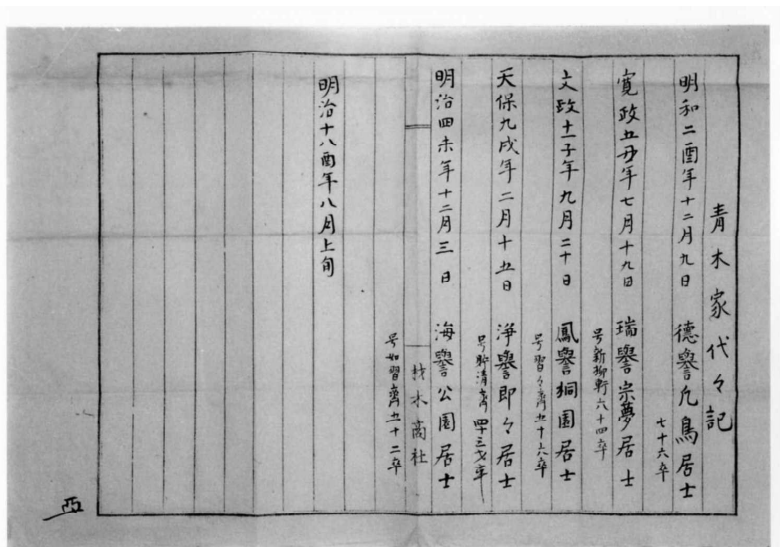 青木家代々記
明和二酉年十二月九日 德譽凢鳥居士
七十六卒
寛政五丑年七月十九日 瑞譽宗夢居士
号新柳軒六十四卒
文政十一子年九月二十日 鳳譽桐園居士
号習々齊五十六卒
天保九戌年二月十五日 淨譽即々居士
号貯清齊 四十三才卒
明治四未年十二月三日 海譽公園居士
材木商社
号如習齊五十二卒
明治十八酉年八月上旬